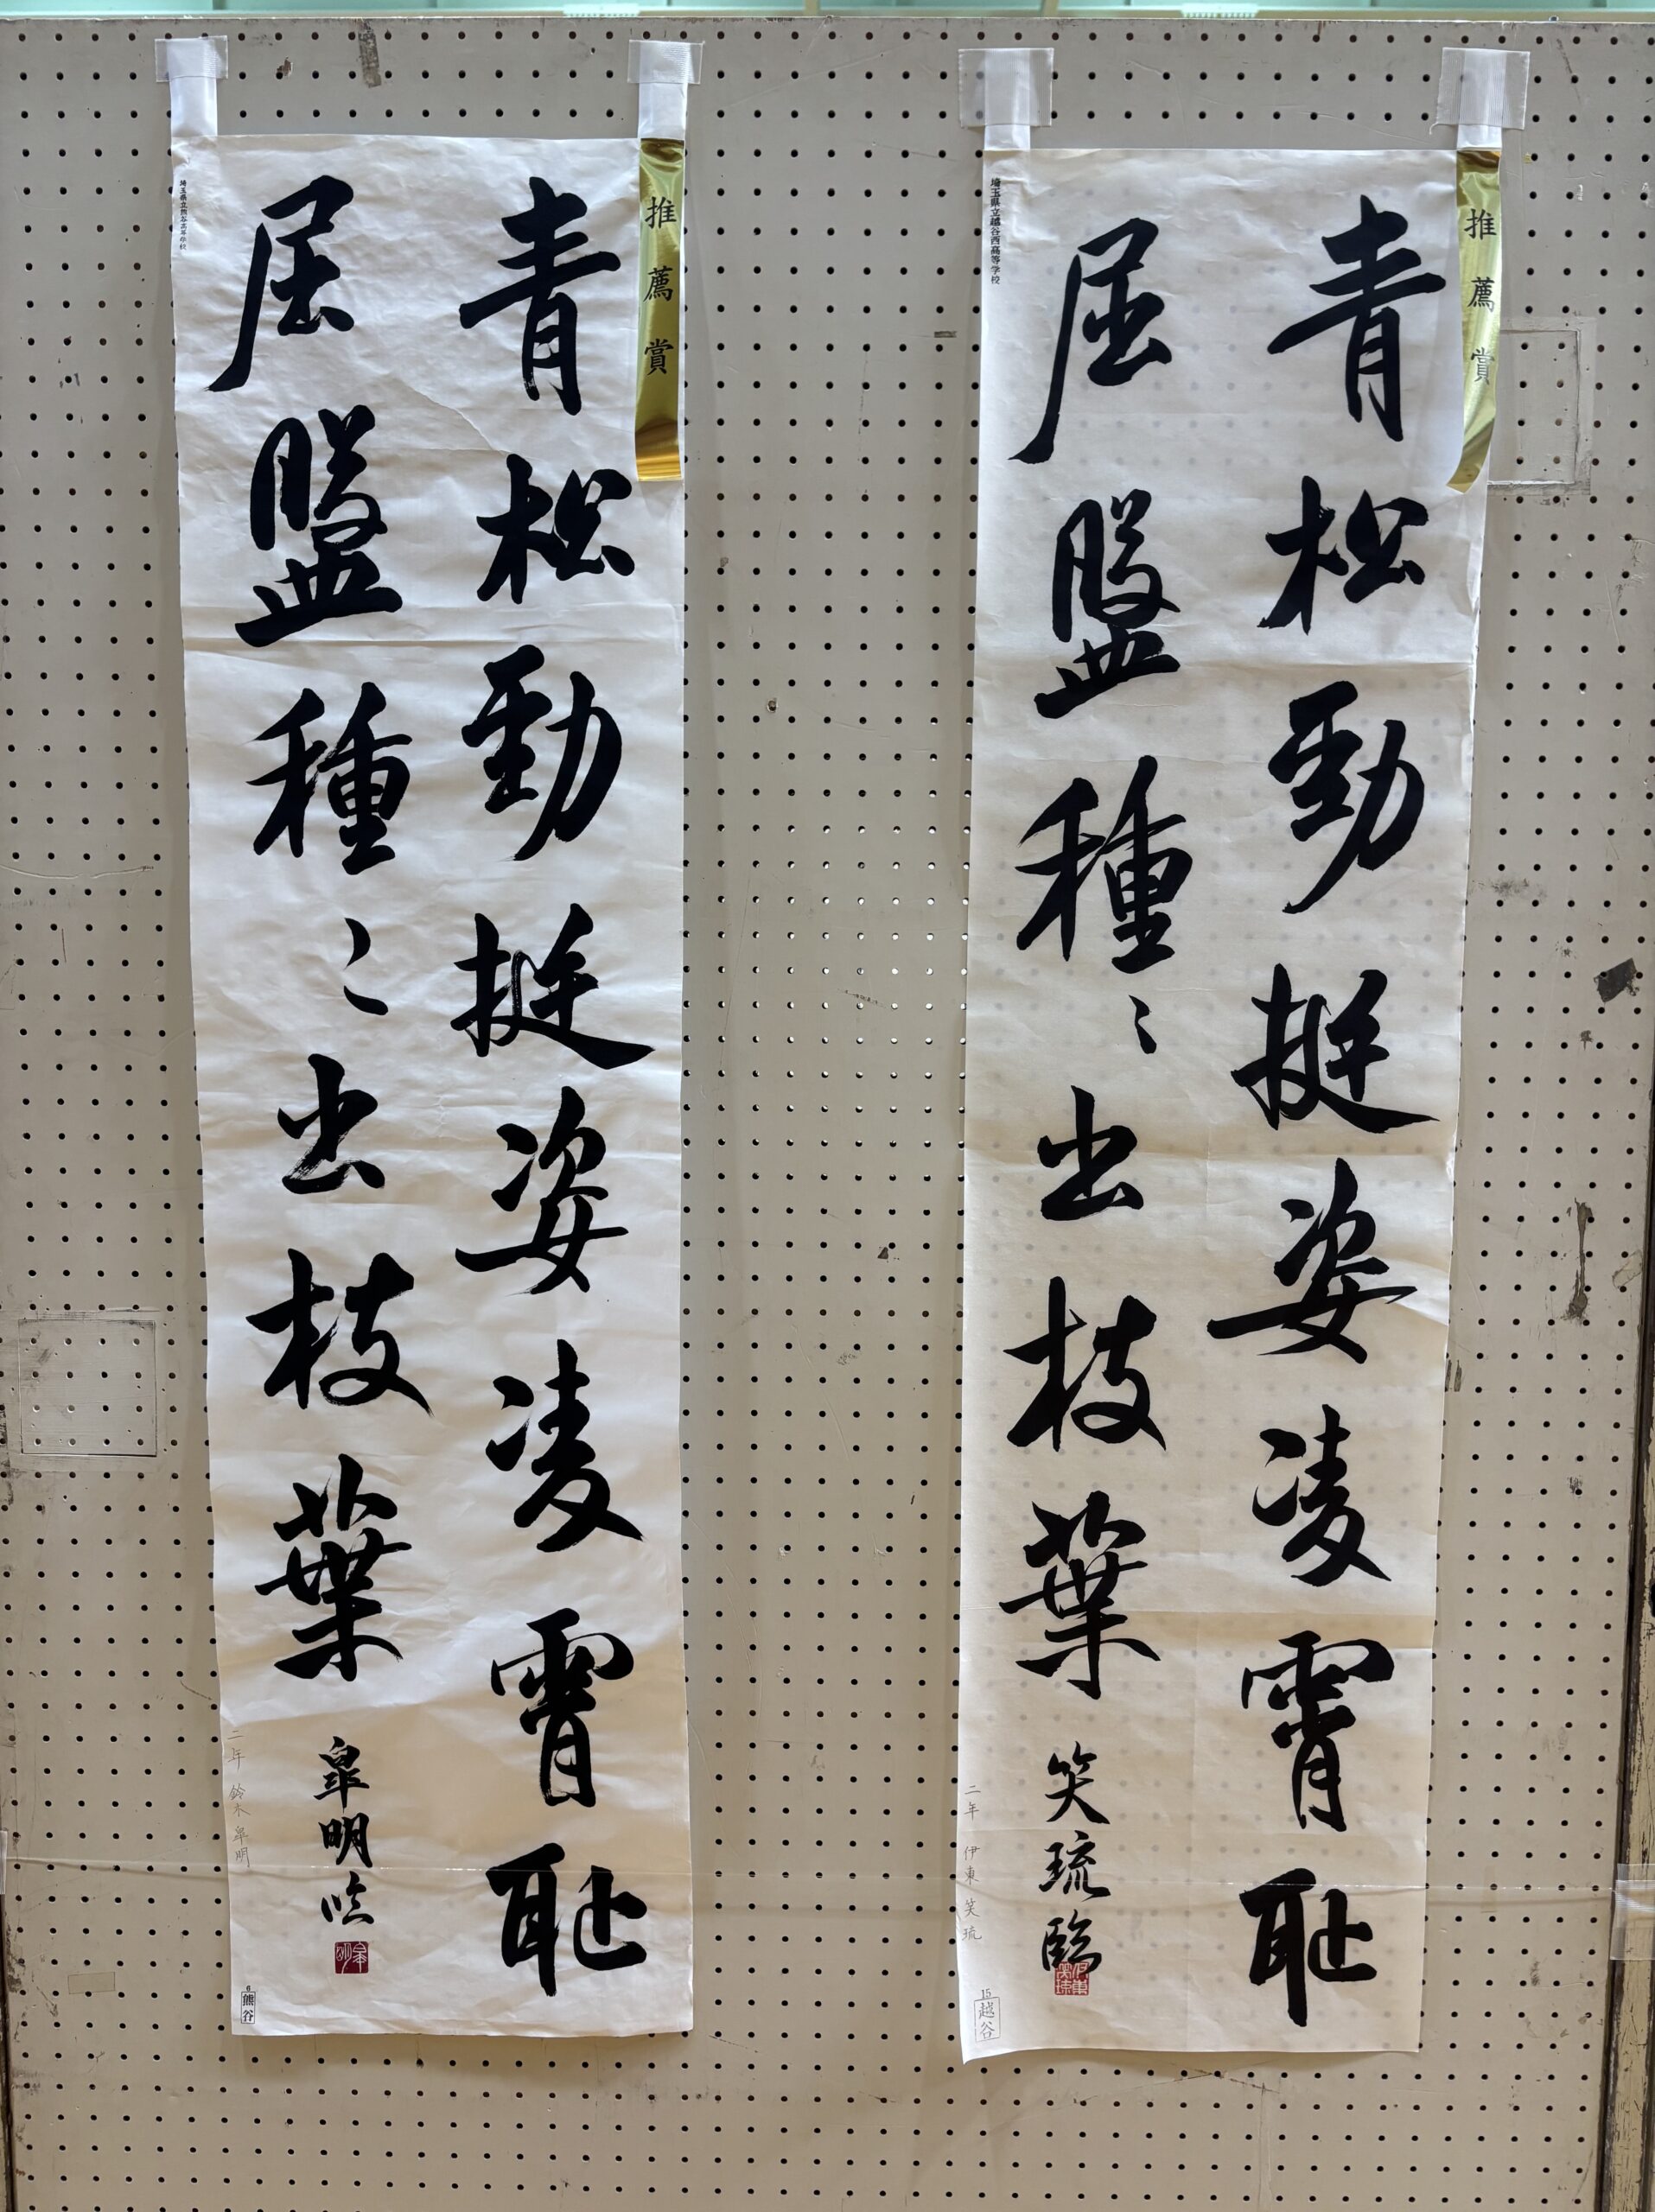 推薦賞
青松勁挺姿凌霄恥
屈盤種〻出枝葉
笑琉臨
二年 伊東笑琉
埼玉県立越谷西高等学校
15
越谷
推薦賞
青松勁挺姿凌霄恥
屈盤種〻出枝葉
皐明臨
二年 鈴木皐明
埼玉県立熊谷高等学校
熊谷